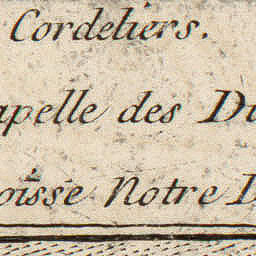 Cordeliers.
apelle des Du
oisse Notre D